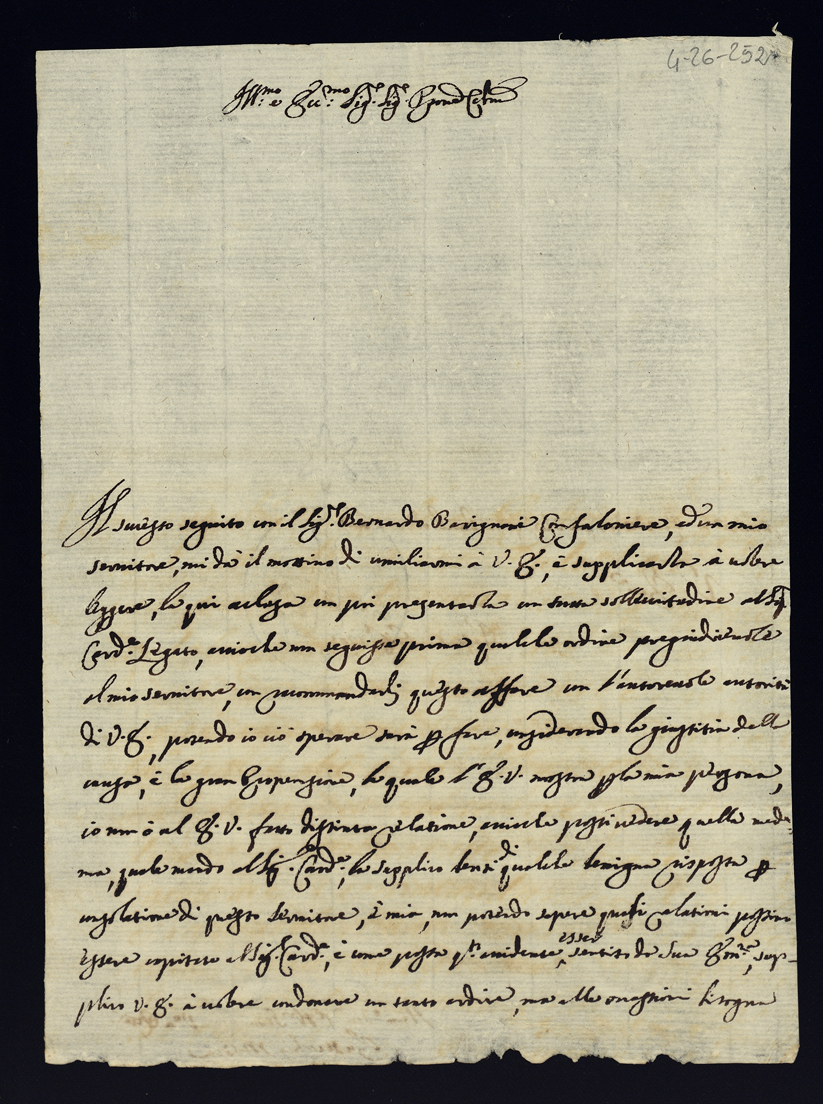 4-26-252
Ill.mo e Ecc.mo Sig.r Sig.r
Il successo seguito con il Sig.r Bernardo Confaloniere, ed un mio
servitore, mi dà il mottivo di umiliarmi à V. E., è supplicarla à volere
leggere, le qui un poi presentarla con summa sollecitudine al Sig.r
Card.e Legato, acciochè non seguisse prima qualche ordine pregiudicievole
al mio servitore, con raccomandarli questo affare con l'autorevole autorità
di V. E., potendo io ciò sperare sarà p fare, considerando la giustitia della
causa, è la gran Propensione, la quale l'E. V. mostra p la mia persona,
io non ò al E. V. fatto distinta relatione, acciochè possi vedere quella mede-
ma, quale mando al Sig.r Card.e, la supplico bensì di qualche benigna risposta p
consolatione di questo servitore, è mia, non potendo sapere quasi relationi possino
essere capitate al Sig.r Card.e, è come possa evidente, esser sentito da Sua Em.za, sup-
plico V. E. à volere condonare un tanto ardire, ma alle occassioni bisogna